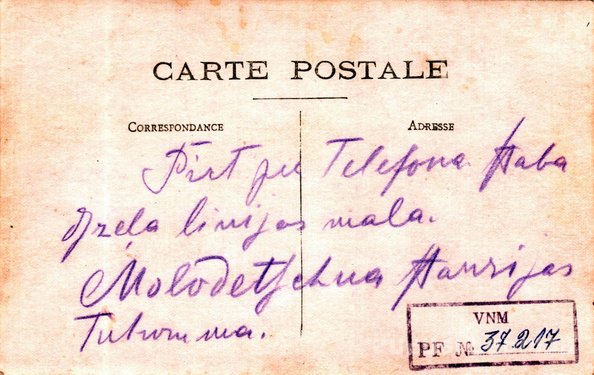 CARTE POSTALE
CORRESPONDANCE
ADRESSE
Pirt pee Telefona staba
dzela linijas mala.
Molodetschna stanzijas
Tutuma.
VNM
PF № 37217